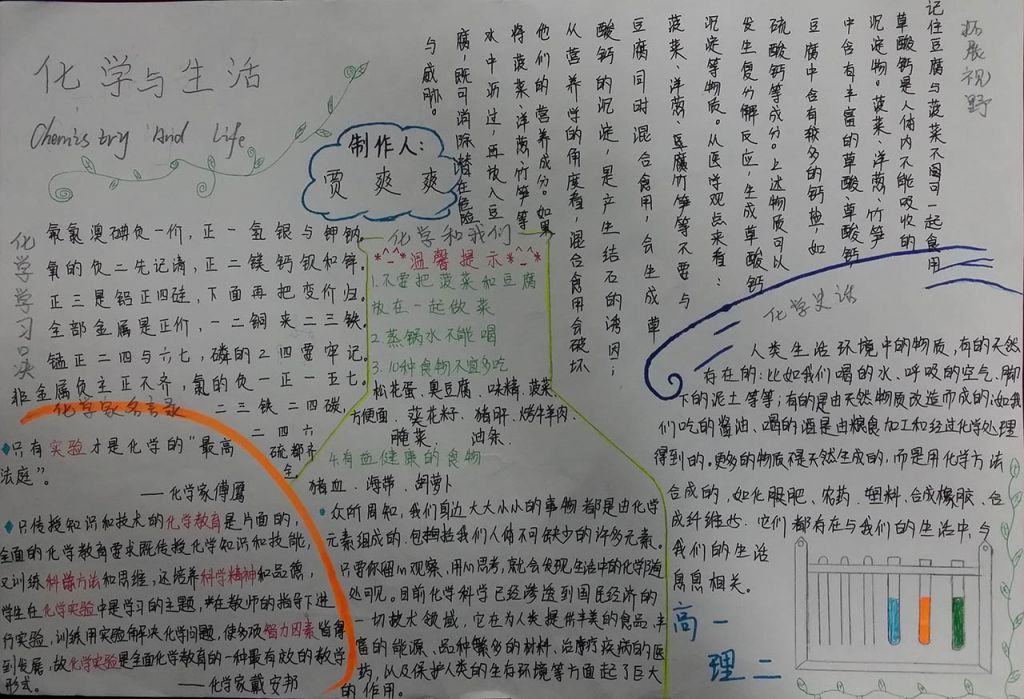 化学与生活
Chemistry And Life
制作人:
贾爽爽
拓展视野
记住豆腐与菠菜不固可一起食用
草酸钙是人体内不能吸收的
沉淀物。菠菜、洋葱、竹笋
中含有丰富的草酸、草酸钙
豆腐中含有较多的钙盐,如
硫酸钙等成分。上述物质可以
发生复分解反应,生成草酸钙
沉淀等物质。从医学观点来看:
菠菜、洋葱、豆腐竹笋等不要与
豆腐同时混合食用,会生成草
酸钙的沉淀,是产生结石的诱因;
从营养学的角度看,混合食用会破坏
他们的营养成分。如果
将菠菜、洋葱、竹笋等
水中沥过,再放入豆
腐,既可消除潜在危险
与威胁。
化学学习口决
氟氯溴碘负一价,正一氢银与钾钠。
氧的负二先记清,正二镁钙钡和锌。
正三是铝正四硅,下面再把变价归。
全部金属是正价,一二铜来二三铁。
锰正二四与六七,磷的2四要牢记。
非金属负主正不齐,氯的负一正一五七。
二三铁二四碳,
二四六
硫都齐
全
化学家名言录
只有实验才是化学的“最高
法庭”。
——化学家傅鹰
只传授知识和技术的化学教育是片面的,
全面的化学教育要求既传授化学知识和技能,
又训练科学方法和思维,还培养科学精神和品德,
学生在化学实验中是学习的主题,在教师的指导下进
行实验,训练用实验解决化学问题,使多项智力因素皆得
到发展,故化学实验是全面化学教育的一种最有效的教学
形式。
——化学家戴安邦
化学和我们
*^_^*温馨提示*^_^*
1.不要把菠菜和豆腐
放在一起做菜
2蒸锅水不能喝
3.10种食物不宜多吃
松花蛋、臭豆腐、味精、菠菜、
方便面、葵花籽、猪肝、烤牛羊肉、
腌菜、油条
4.有益健康的食物
猪血、海带、胡萝卜
众所周知,我们身边大大小小的事物都是由化学
元素组成的。包括我们人体不可缺少的许多元素。
只要你留心观察、用心思考,就会发现生活中的化学随
处可见。目前化学科学已经渗透到国民经济的
一切技术领域,它在为人类提供丰美的食品、丰
富的能源、品种繁多的材料、治疗疾病的医
药,以及保护人类的生存环境等方面起了巨大
的作用。
化学史话
人类生活环境中的物质,有的天然
存在的:比如我们喝的水、呼吸的空气、脚
下的泥土等等;有的是由天然物质改造而成的:如我
们吃的酱油、喝的酒是由粮食加工和经过化学处理
得到的。更多的物质不是天然生成的,而是用化学方法
合成的,如化服肥、农药、塑料、合成橡胶、合
成纤维些。它们都存在与我们的生活中,与
我们的生活
息息相关。
高一
理二